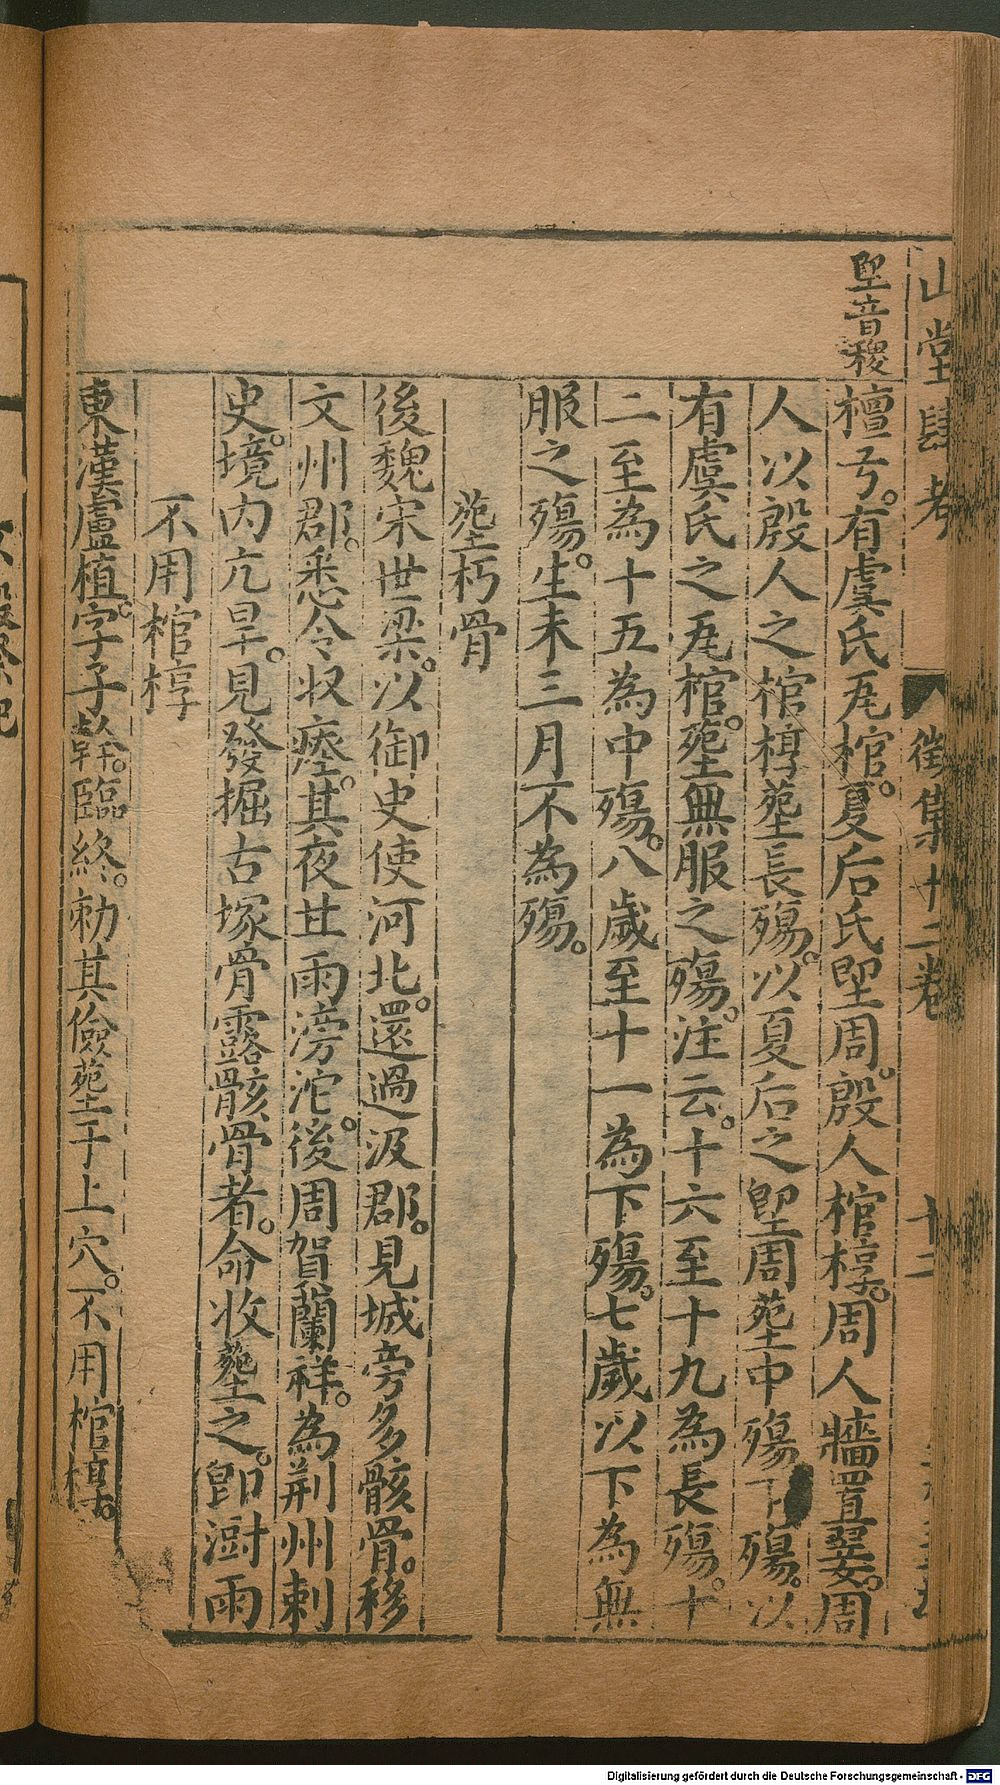 山堂肆考 徵集十二卷 十二
堲音稷
檀弓。有虞氏瓦棺。夏后氏堲周。殷人棺椁。周人牆置翣。周
人以殷人之棺椁塟長殤。以夏后之堲周塟中殤下殤。以
有虞氏之瓦棺。塟無服之殤。注云。十六至十九為長殤。十
二至為十五為中殤。八歲至十一為下殤。七歲以下為無
服之殤。生未三月不為殤。
塟朽骨
後魏宋世梁。以御史使河北。還過汲郡。見城旁多骸骨。移
文州郡。悉令收瘞。其夜甘雨滂沱。後周賀蘭祥。為荆州刺
史。境内亢旱。見發掘古塚骨露骸骨者。命收塟之。即澍雨
不用棺椁
東漢盧植。字子幹。臨終。勑其儉塟于上穴。不用棺椁。
Digitalisierung gefördert durch die Deutsche Forschungsgemeinschaft - DFG